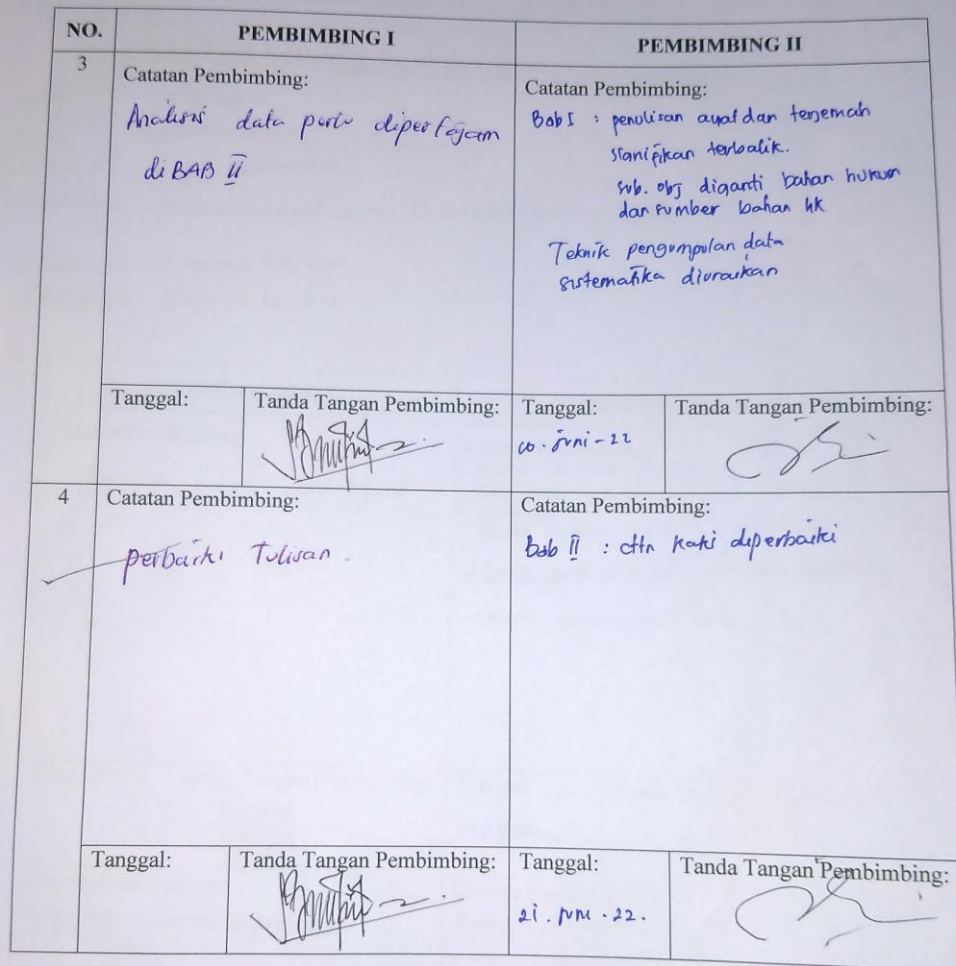 NO.
PEMBIMBING I
PEMBIMBING II
3
Catatan Pembimbing:
Analisis data perlu dipertajam
di BAB II
Catatan Pembimbing:
Bab I : penulisan ayat dan terjemah
terbalik.
sub. obj diganti bahan hukum
dan sumber bahan hk
Teknik pengumpulan data
sistematika diuraikan
Tanggal:
Tanda Tangan Pembimbing:
Tanggal:
Juni - 22
Tanda Tangan Pembimbing:
4
Catatan Pembimbing:
perbaiki Tulisan.
Catatan Pembimbing:
Bab II : cttn kaki diperbaiki
Tanggal:
Tanda Tangan Pembimbing:
Tanggal:
21. Juni. 22.
Tanda Tangan Pembimbing: